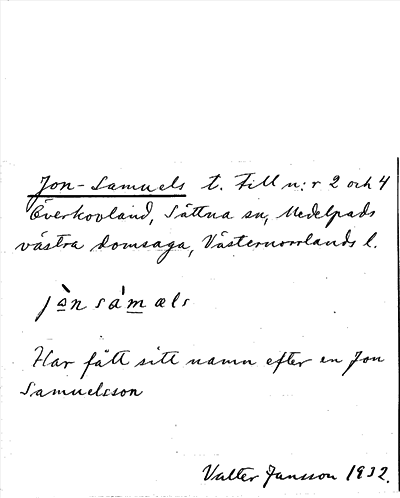 Jon-Samuels t. till n:r 2 och 4
Överkovland, Sättna sn, Medelpads
västra domsaga, Västernorrlands l.
jɑ̀n sámæls
Har fått sitt namn efter en Jon
Samuelsson
Valter Jansson 1932.